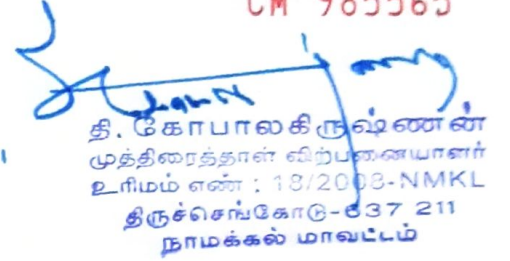 CM 705565
தி. கோபாலகிருஷ்ணன்
முத்திரைத்தாள் விற்பனையாளர்
உரிமம் எண் : 18/2008-NMKL
திருச்செங்கோடு-637 211
நாமக்கல் மாவட்டம்